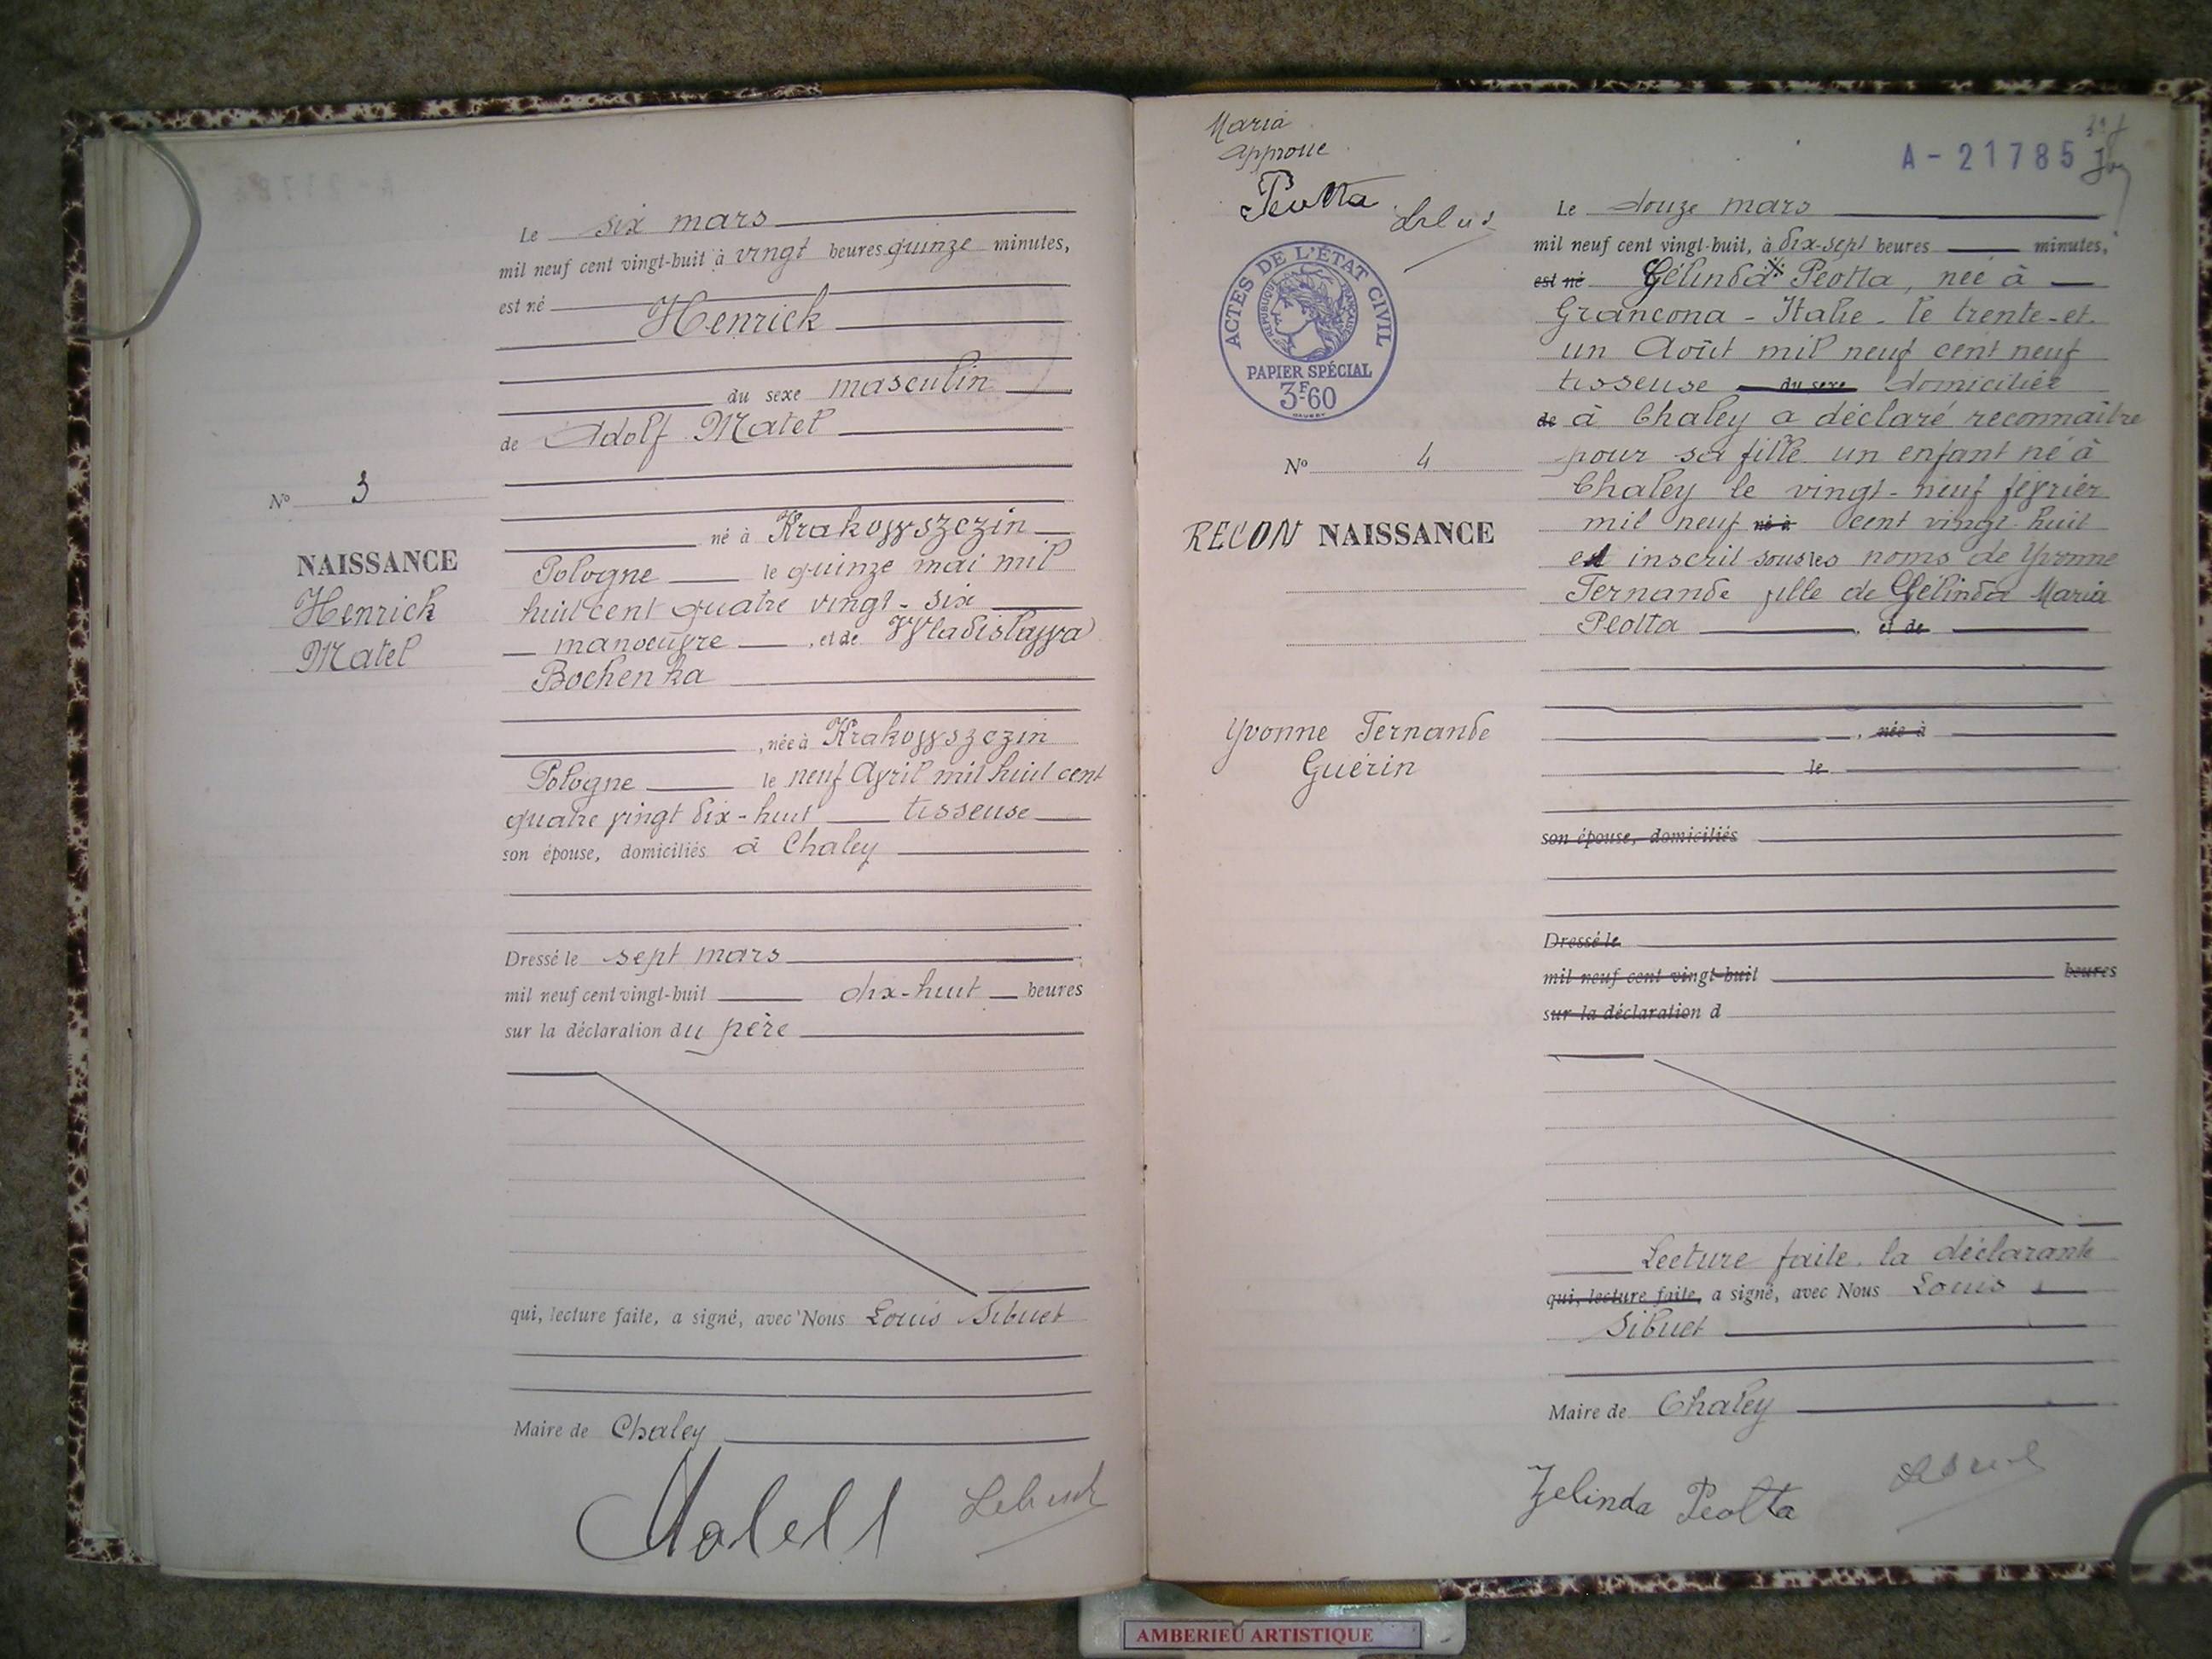 Le six mars
mil neuf cent vingt-huit à vingt heures quinze minutes,
est né
Henrick
du sexe masculin
de Adolf Matel
No 3
né à Krakowszezin
NAISSANCE
Pologne le quinze mai mil
Henrick
huit cent quatre vingt-six
Matel
manoeuvre, et de Wladislawa
Bochenka
, née à Krakowszezin
Pologne le neuf Avril mil huit cent
quatre vingt dix-huit tisseuse
son épouse, domiciliés à Chaley
Dressé le sept mars
mil neuf cent vingt-huit dix-huit heures
sur la déclaration du père
qui, lecture faite, a signé, avec Nous Louis Sibuet
Maire de Chaley
Matell
Maria
approuve
Peotta
ACTES DE L'ÉTAT CIVIL
RÉPUBLIQUE FRANÇAISE
PAPIER SPÉCIAL
3F60
A-21785
Le douze mars
mil neuf cent vingt-huit, à dix-sept heures minutes,
est né Gélinda Peotta, née à
Grancona - Italie - le trente-et-
un Août mil neuf cent neuf
tisseuse du sexe domiciliée
de à Chaley a déclaré reconnaître
No 4
pour sa fille un enfant né à
Chaley le vingt-neuf février
RECON NAISSANCE
mil neuf né à cent vingt huit
et inscrit sous les noms de Yvonne
Fernande fille de Gélinda Maria
Peotta, et de
Yvonne Fernande
Guérin
, née à
le
son épouse, domiciliés
Dressé le
mil neuf cent vingt-huit heures
sur la déclaration d
Lecture faite, la déclarante
qui, lecture faite, a signé, avec Nous Louis
Sibuet
Maire de Chaley
Zelinda Peotta
AMBERIEU ARTISTIQUE